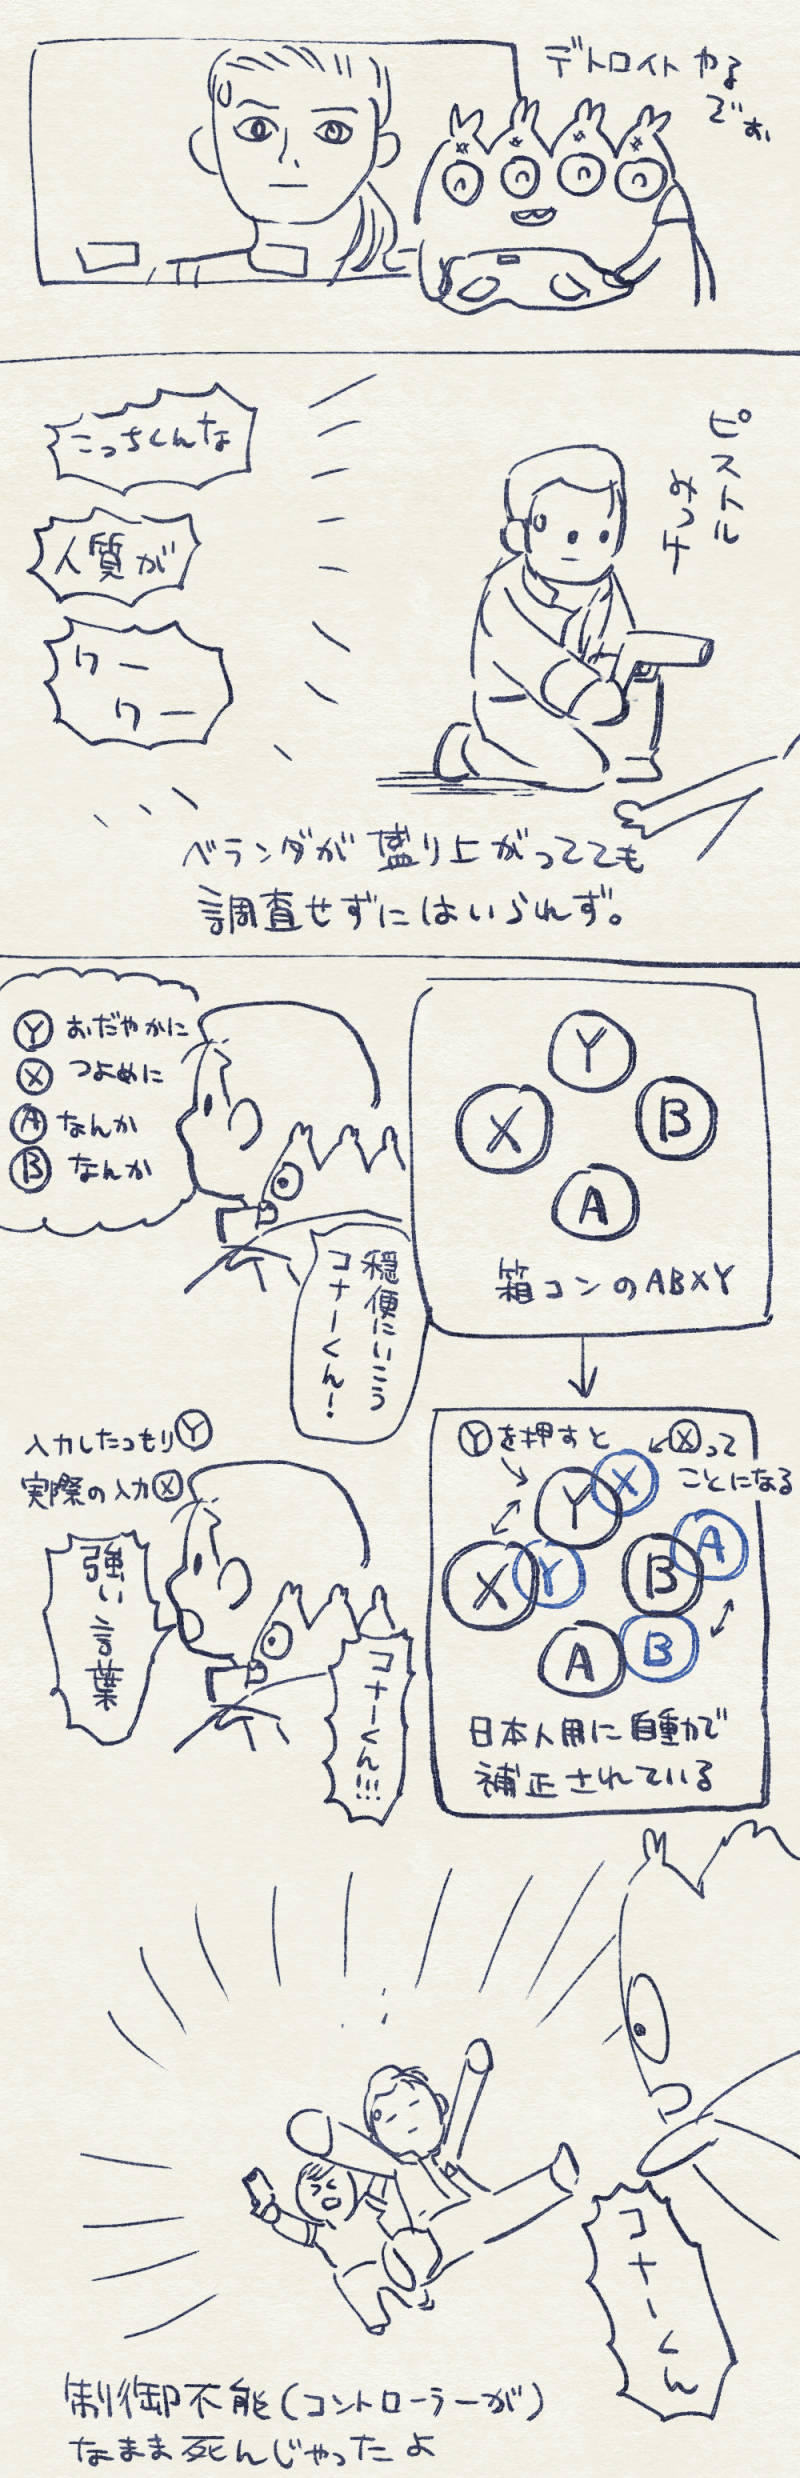 デトロイトやる
ぞぉ
ピストル
みっけ
こっちくんな
人質が
ワー
ワー
ベランダが盛り上がってても
調査せずにはいられず。
Y おだやかに
X つよめに
A なんか
B なんか
穏便にいこう
コナーくん!
Y
X
B
A
箱コンのABXY
入力したつもりY
実際の入力X
強い言葉
コナーくん!!!
Yを押すと
Xって
ことになる
Y
X
X
Y
B
A
A
B
日本人用に自動で
補正されている
コナーくん
制御不能(コントローラーが)
なまま死んじゃったよ